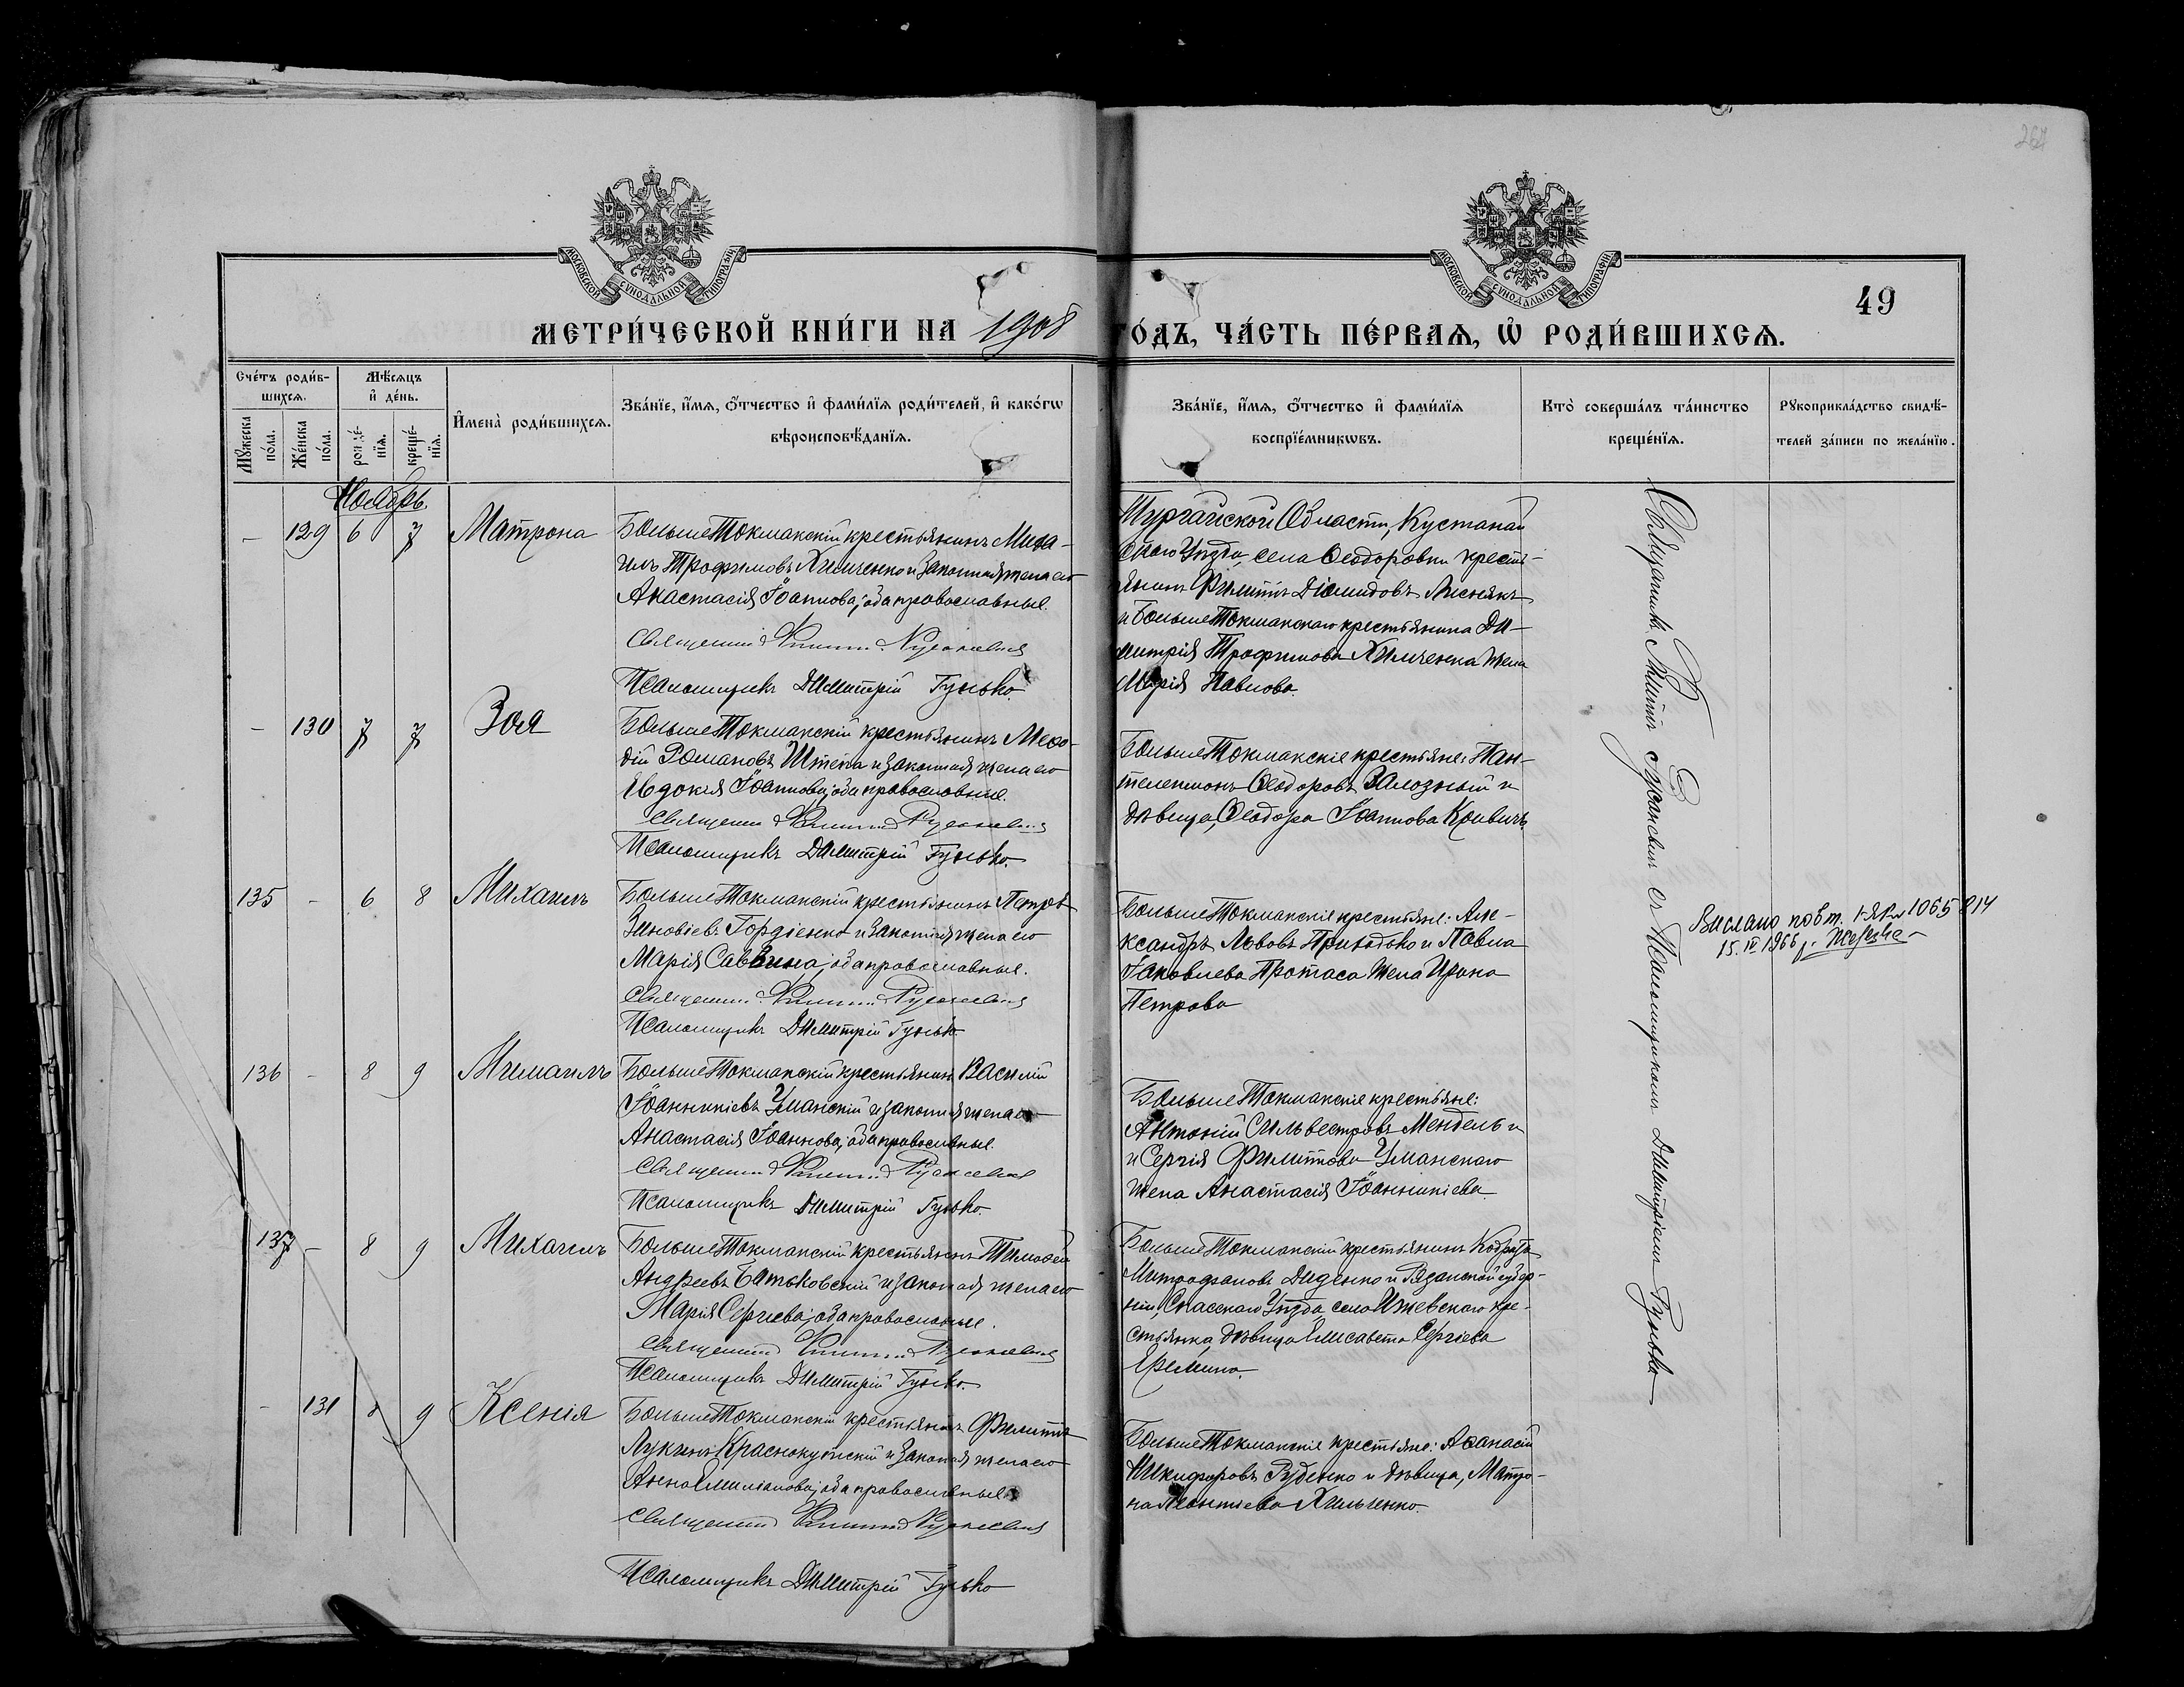 264
МОСКОВСКОЙ СѴНОДАЛЬНОЙ ТИПОГРАФІИ
МОСКОВСКОЙ СѴНОДАЛЬНОЙ ТИПОГРАФІИ
49
МЕТРИ́ЧЕСКОЙ КНИ́ГИ НА 1908
ГО́ДЪ, ЧА́СТЬ ПЕ́РВАЯ, Ѡ РОДИ́ВШИХСЯ.
Сче́тъ роди́в-
шихся.
Мѣ́сяцъ
и҆ де́нь.
Мꙋ́жеска
по́ла.
Же́нска
по́ла.
рожде́-
нїя.
креще́-
нїя.
И҆мена̀ роди́вшихся.
Зва́нїе, и҆́мя, ѻ҆́тчество и҆ фами́лїя роди́телей, и҆ како́гѡ
вѣроисповѣ́данїя.
Зва́нїе, и҆́мя, ѻ҆́тчество и҆ фами́лїя
воспрїе́мникѡвъ.
Кто̀ соверша́лъ та́инство
креще́нїя.
Рꙋкоприкла́дство свидѣ́-
телей за́писи по жела́нїю.
Ноябрь.
— 129 6 7 Матрона
БольшеТокмакскій крестьянинъ Миха-
илъ Трофимовъ Хильченко и законная жена его
Анастасія Іоаннова; оба православные.
Священникъ Филиппъ
Псаломщикъ Димитрій Гунько
Тургайской Области, Кустанай
скаго Уѣзда, села Ѳеодоровки кресть-
янинъ Филиппъ Діомидовъ Лиснякъ
и БольшеТокмакскаго крестьянина Ди-
митрія Трофимова Хильченка жена
Марія Павлова.
— 130 7 7 Зоя
БольшеТокмакскій крестьянинъ Меѳо-
дій Романовъ Штепа и законная жена его
Евдокія Іоаннова; оба православные.
Священникъ Филиппъ
Псаломщикъ Димитрій Гунько.
БольшеТокмакскіе крестьяне: Пан-
телеимонъ Ѳеодоровъ Залозный и
дѣвица, Ѳеодора Іоаннова
135 — 6 8 Михаилъ
БольшеТокмакскій крестьянинъ Петръ
Зиновіевъ Гордіенко и законная жена его
Марія Саввина; оба православные.
Священникъ Филиппъ
Псаломщикъ Димитрій Гунько
БольшеТокмакскіе крестьяне: Але-
ксандръ Львовъ Приходько и Павла
Іаковлева Протаса жена Ирина
Петрова
Вислано повт. 1065 814
15.IV 1966 р.
136 — 8 9 Михаилъ
БольшеТокмакскій крестьянинъ Василій
Іоанникіевъ Уманскій и законная жена его
Анастасія Іоаннова; оба православные.
Священникъ Филиппъ
Псаломщикъ Димитрій Гунько.
БольшеТокмакскіе крестьяне:
Антоній Сильвестровъ Мендель и
и Сергія Филиппова Уманскаго
жена Анастасія Іоанникіева
137 — 8 9 Михаилъ
БольшеТокмакскій крестьянинъ Тимоѳей
Андреевъ Батьковскій и законная жена его
Марія Сергіева; оба православные.
Священникъ Филиппъ
Псаломщикъ Димитрій Гунько.
БольшеТокмакскій крестьянинъ Кодратъ
Митрофановъ Диденко и Рязанской губер-
ніи, Спасскаго Уѣзда, села Ижевскаго кре-
стьянка, дѣвица Елисавета Сергіева
Еремина.
— 131 8 9 Ксенія
БольшеТокмакскій крестьянинъ Филиппъ
Лукинъ Краснокутскій и законная жена его
Анна Емиліанова; оба православные
Священникъ Филиппъ
Псаломщикъ Димитрій Гунько
БольшеТокмакскіе крестьяне: Аѳанасій
Никифоровъ Руденко и дѣвица, Матро-
на Леонтіева Хильченко.
Священникъ Филиппъ съ Псаломщикомъ Димитріемъ Гунько